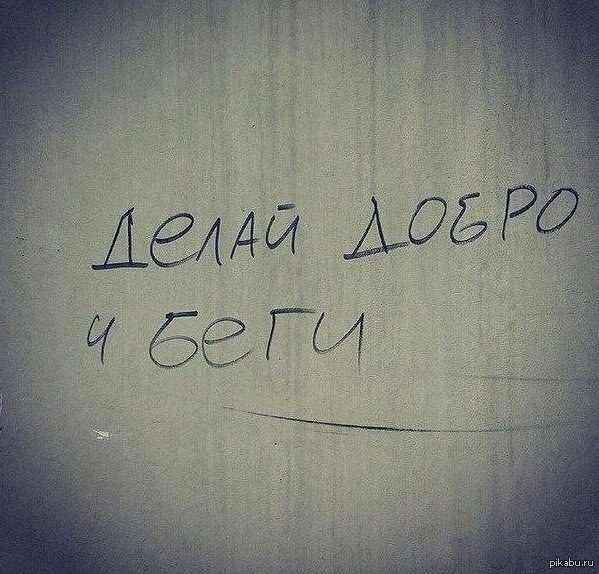 Делай добро
и беги
pikabu.ru